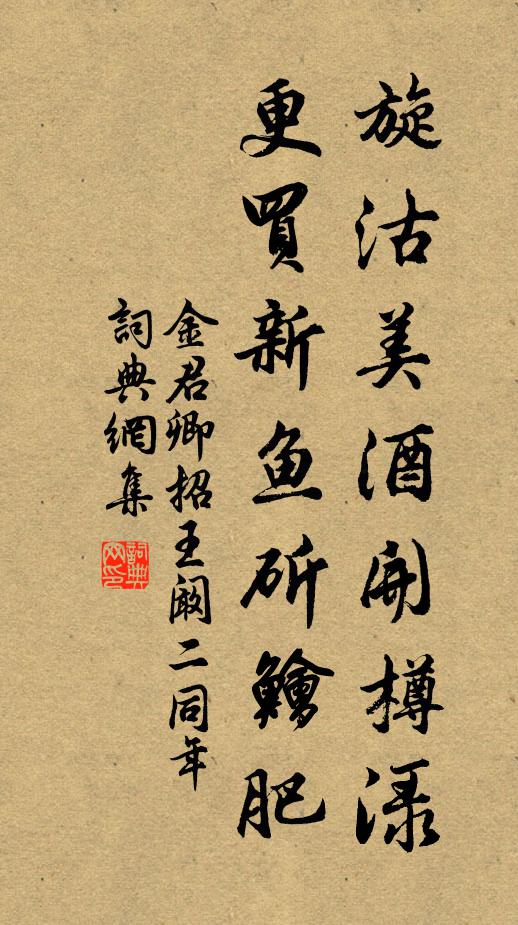 旋沽美酒開樽渌
更買新魚斫鱠肥
金君卿招王闞二同年
詞典網集
詞典網印